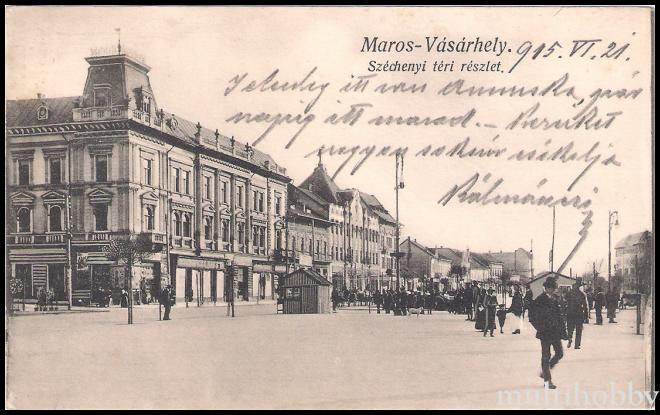 Maros-Vásárhely. 915. VI. 21.
Széchenyi téri részlet.
Jelenleg itt van Annuska, pár
napig itt marad. –
nagyon sokszor csókolja
Kálmáncsi
multihobby